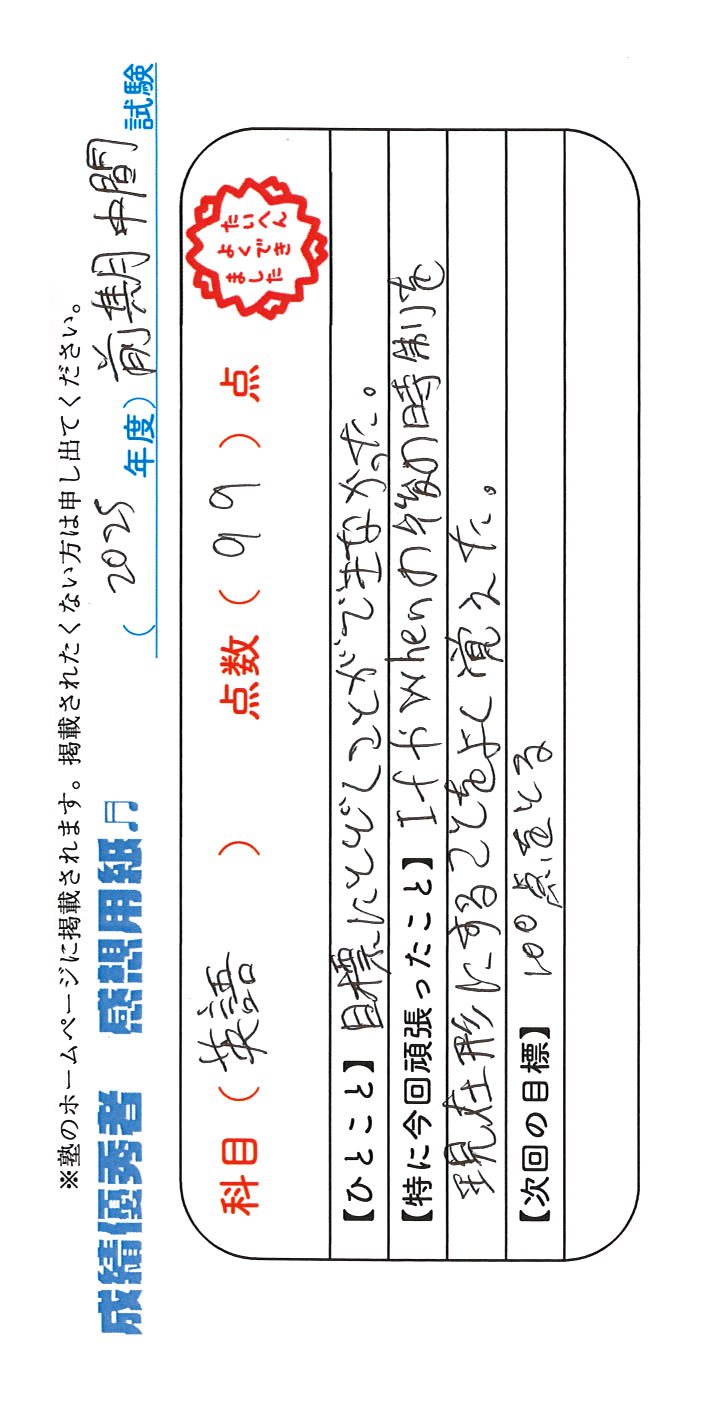 ※塾のホームページに掲載されます。掲載されたくない方は申し出てください。
成績優秀者 感想用紙♬ ( 2025 年度) 前期中間 試験
科目 ( 英語 ) 点数 ( 99 ) 点
たいへん
よくでき
ました
【ひとこと】 目標にとどくことができなかった。
【特に今回頑張ったこと】 Ifやwhenの後の時制を
現在形にすることをよく覚えた。
【次回の目標】 100点をとる